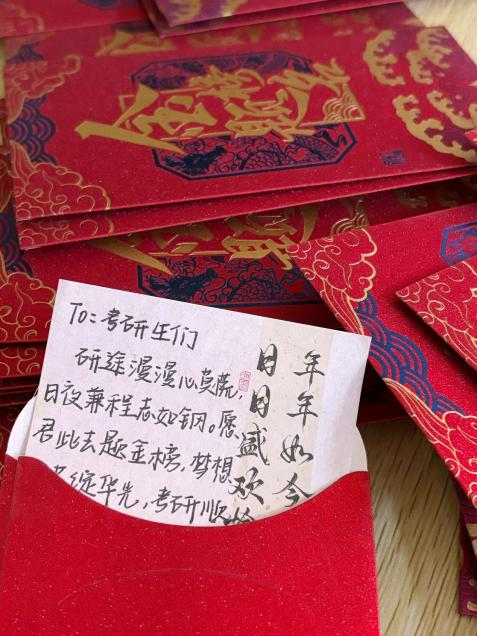 To:考研生们
研途漫漫心莫慌,
日夜兼程志如钢。愿
君此去题金榜,梦想
绽华光,考研顺
年年如今
日日盛欢